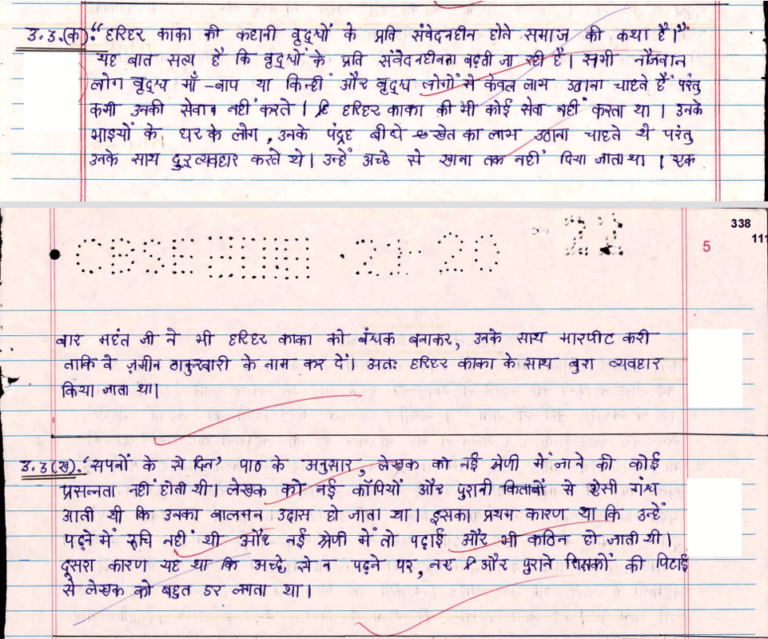 उ.3.(क):“हरिहर काका की कहानी वृद्धों के प्रति संवेदनहीन होते समाज की कथा है।”
यह बात सत्य है कि वृद्धों के प्रति संवेदनहीनता बढ़ती जा रही है। सभी नौजवान
लोग वृद्ध माँ-बाप या किन्हीं और वृद्ध लोगों से केवल लाभ उठाना चाहते हैं परंतु
कभी उनकी सेवा न नहीं करते। हरिहर काका की भी कोई सेवा नहीं करता था। उनके
भाइयों के घर के लोग, उनके पंद्रह बीघे खेत का लाभ उठाना चाहते थे परंतु
उनके साथ दुर्व्यवहार करते थे। उन्हें अच्छे से खाना तक नहीं दिया जाता था। एक
CBSE 21-20
338
5
111
बार महंत जी ने भी हरिहर काका को बंधक बनाकर, उनके साथ मारपीट करी
ताकि वे ज़मीन ठाकुरबारी के नाम कर दें। अतः हरिहर काका के साथ बुरा व्यवहार
किया जाता था।
उ.3(ख). ‘सपनों के से दिन’ पाठ के अनुसार, लेखक को नई श्रेणी में जाने की कोई
प्रसन्नता नहीं होती थी। लेखक को नई कॉपियों और पुरानी किताबों से ऐसी गंध
आती थी कि उनका बालमन उदास हो जाता था। इसका प्रथम कारण था कि उन्हें
पढ़ने में रुचि नहीं थी और नई श्रेणी में तो पढ़ाई और भी कठिन हो जाती थी।
दूसरा कारण यह था कि अच्छे से न पढ़ने पर, नए और पुराने शिक्षकों की पिटाई
से लेखक को बहुत डर लगता था।